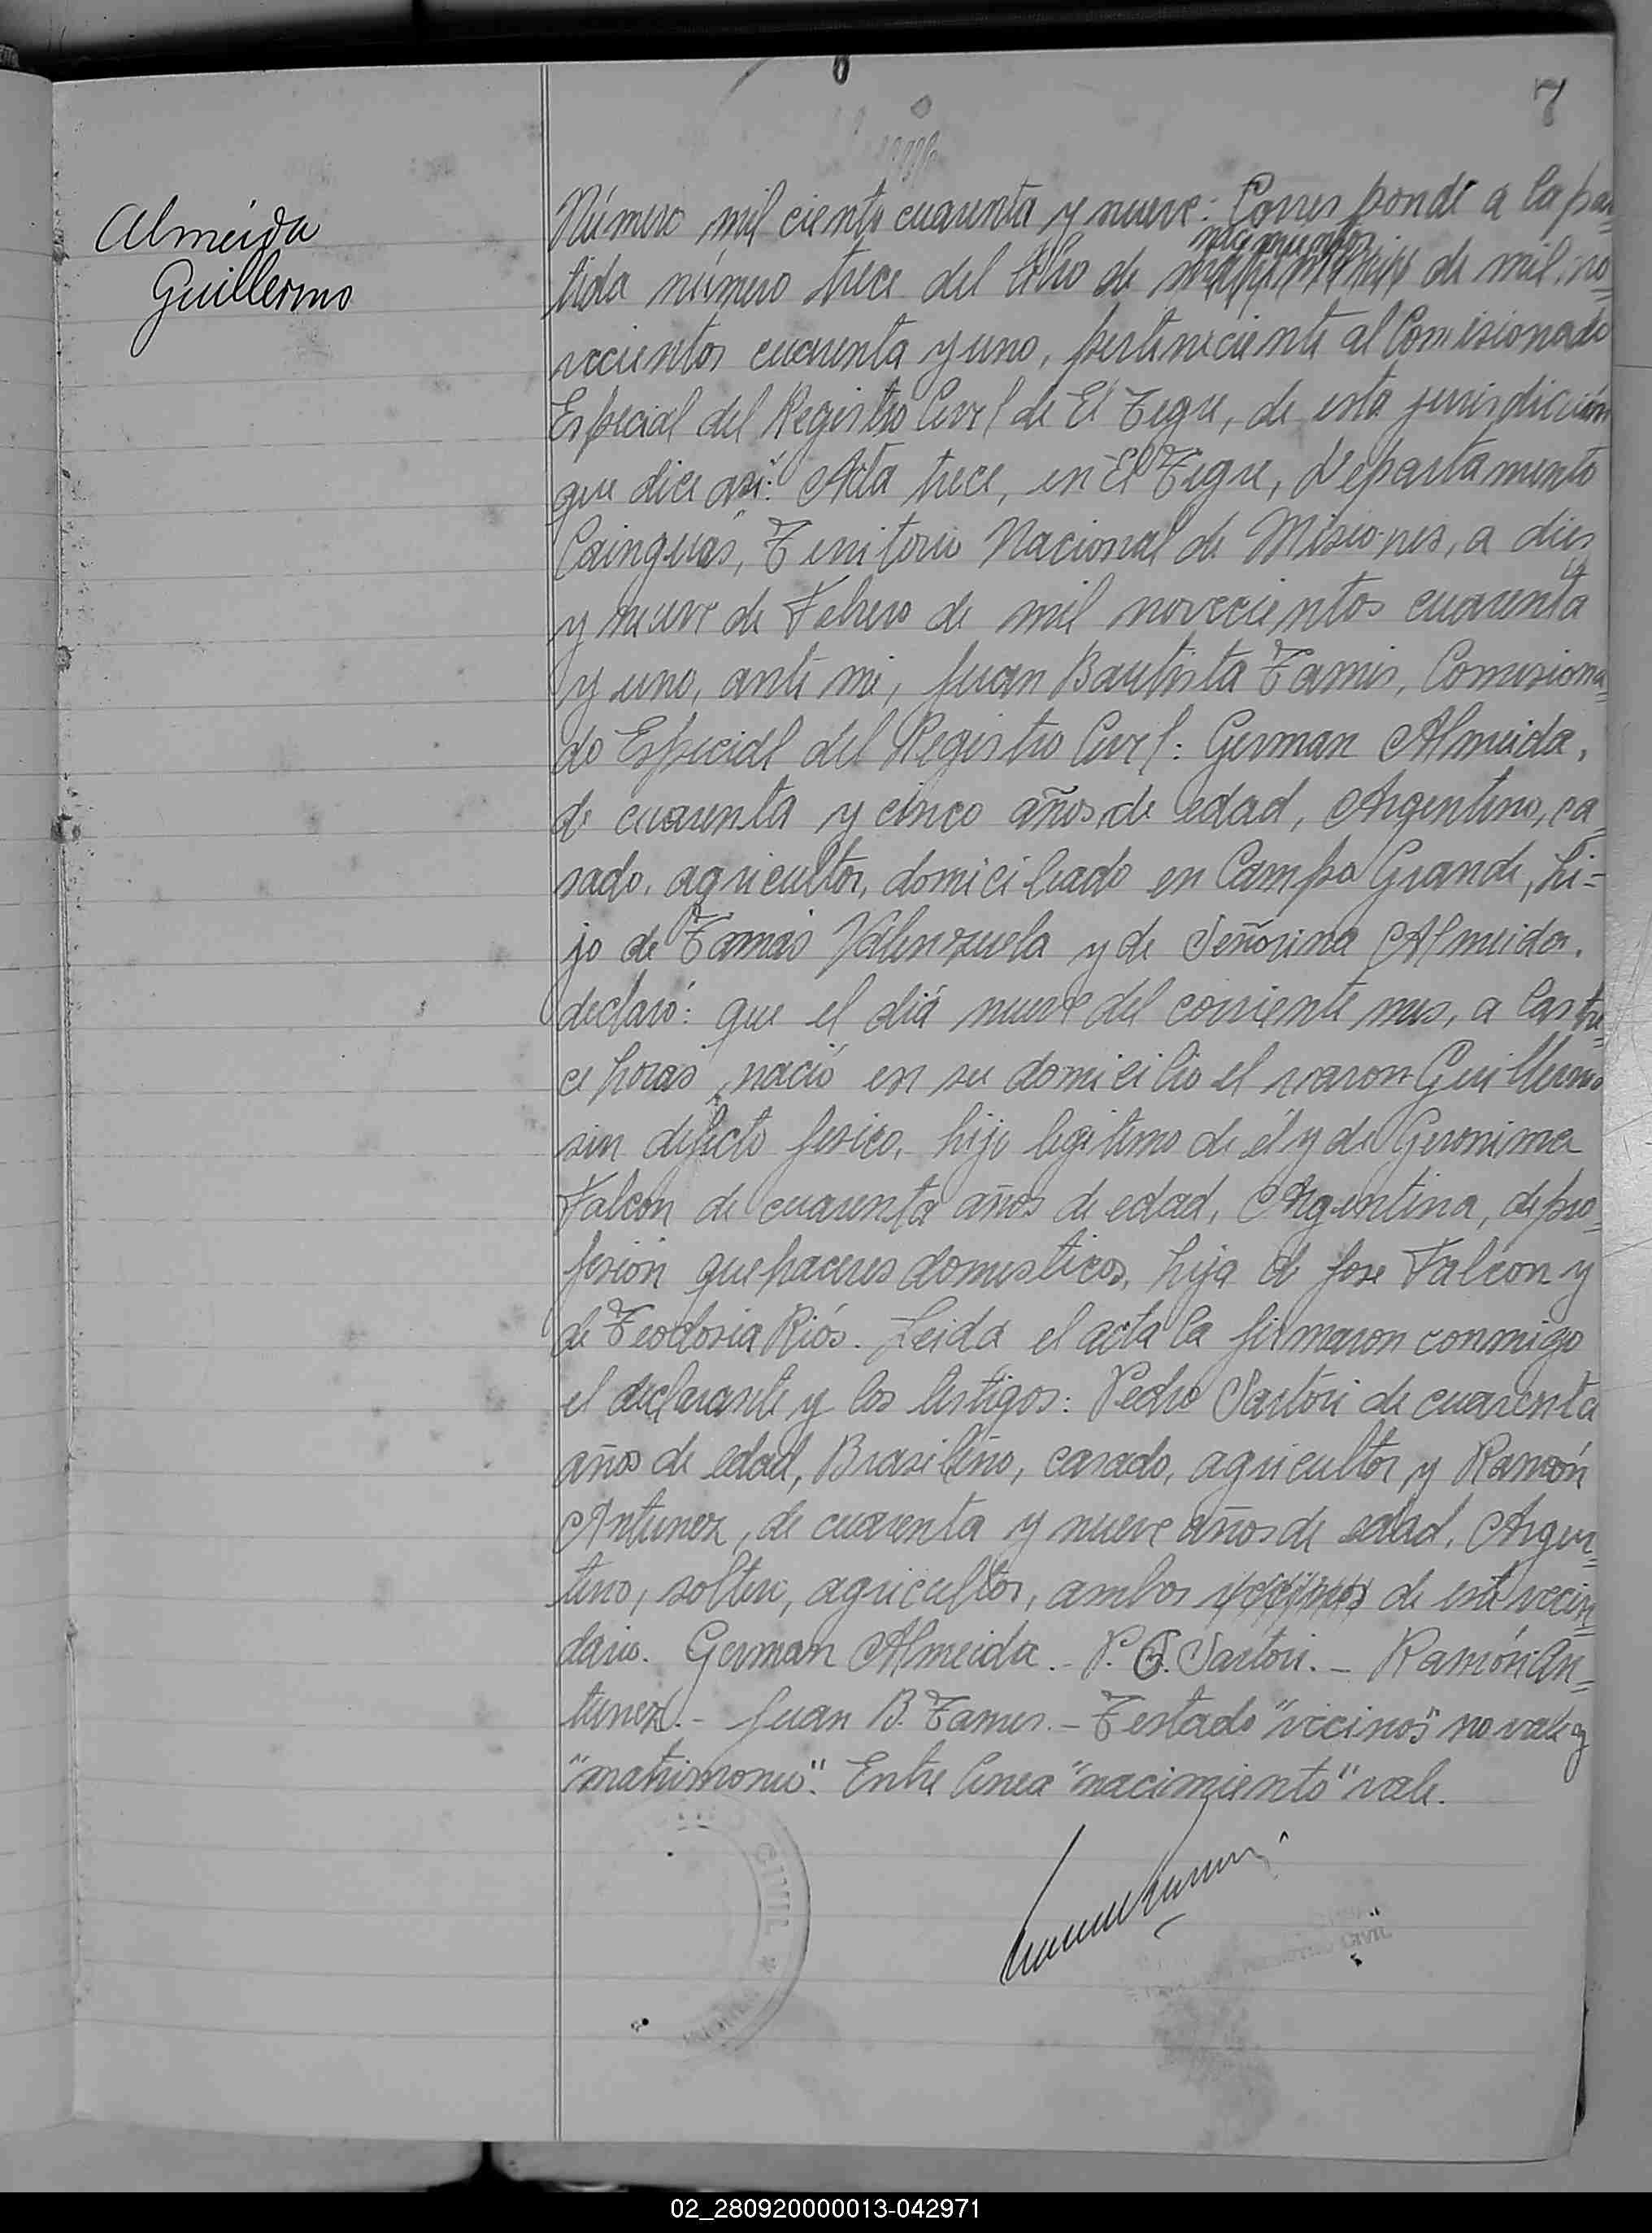 7
Almeida
Guillermo
Número mil ciento cuarenta y nueve: Corresponde a la par=
nacimientos
tida número trece del libro de matrimonios de mil no=
vecientos cuarenta y uno, perteneciente al Comisionado
Especial del Registro Civil de El Tigre, de esta jurisdicción
que dice asi: Acta trece, en El Tigre, Departamento
Cainguás, Territorio Nacional de Misiones, a dies
y nueve de Febrero de mil novecientos cuarenta
y uno, ante mi, Juan Bautista Tamis, Comisiona=
do Especial del Registro Civil: German Almeida,
de cuarenta y cinco años de edad, Argentino, ca=
sado, agricultor, domiciliado en Campo Grande, hi=
jo de Tomás Valenzuela y de Señorina Almeida,
declaró: que el diá nueve del corriente mes, a las tre=
ce horas, nació en su domicilio el varon Guillermo
sin defecto fisico, hijo legitimo de él y de Geronima
Falcon de cuarenta años de edad, Argentina, de pro=
fesión quehaceres domesticos, hija de Jose Falcon y
de Teodosia Riós. Leida el acta la firmaron conmigo
el declarante y los testigos: Pedro Sartori de cuarenta
años de edad, Brasileño, casado, agricultor y Ramón
Antunez, de cuarenta y nueve años de edad, Argen=
tino, soltero, agricultor, ambos vecinos de este vecin=
dario. German Almeida.- P. G. Sartori.- Ramón An=
tunez.- Juan B. Tamis.- Testado "vecinos" no vale y
"matrimonio". Entre linea "nacimiento" vale.
CIVIL
CIVIL
02_280920000013-042971